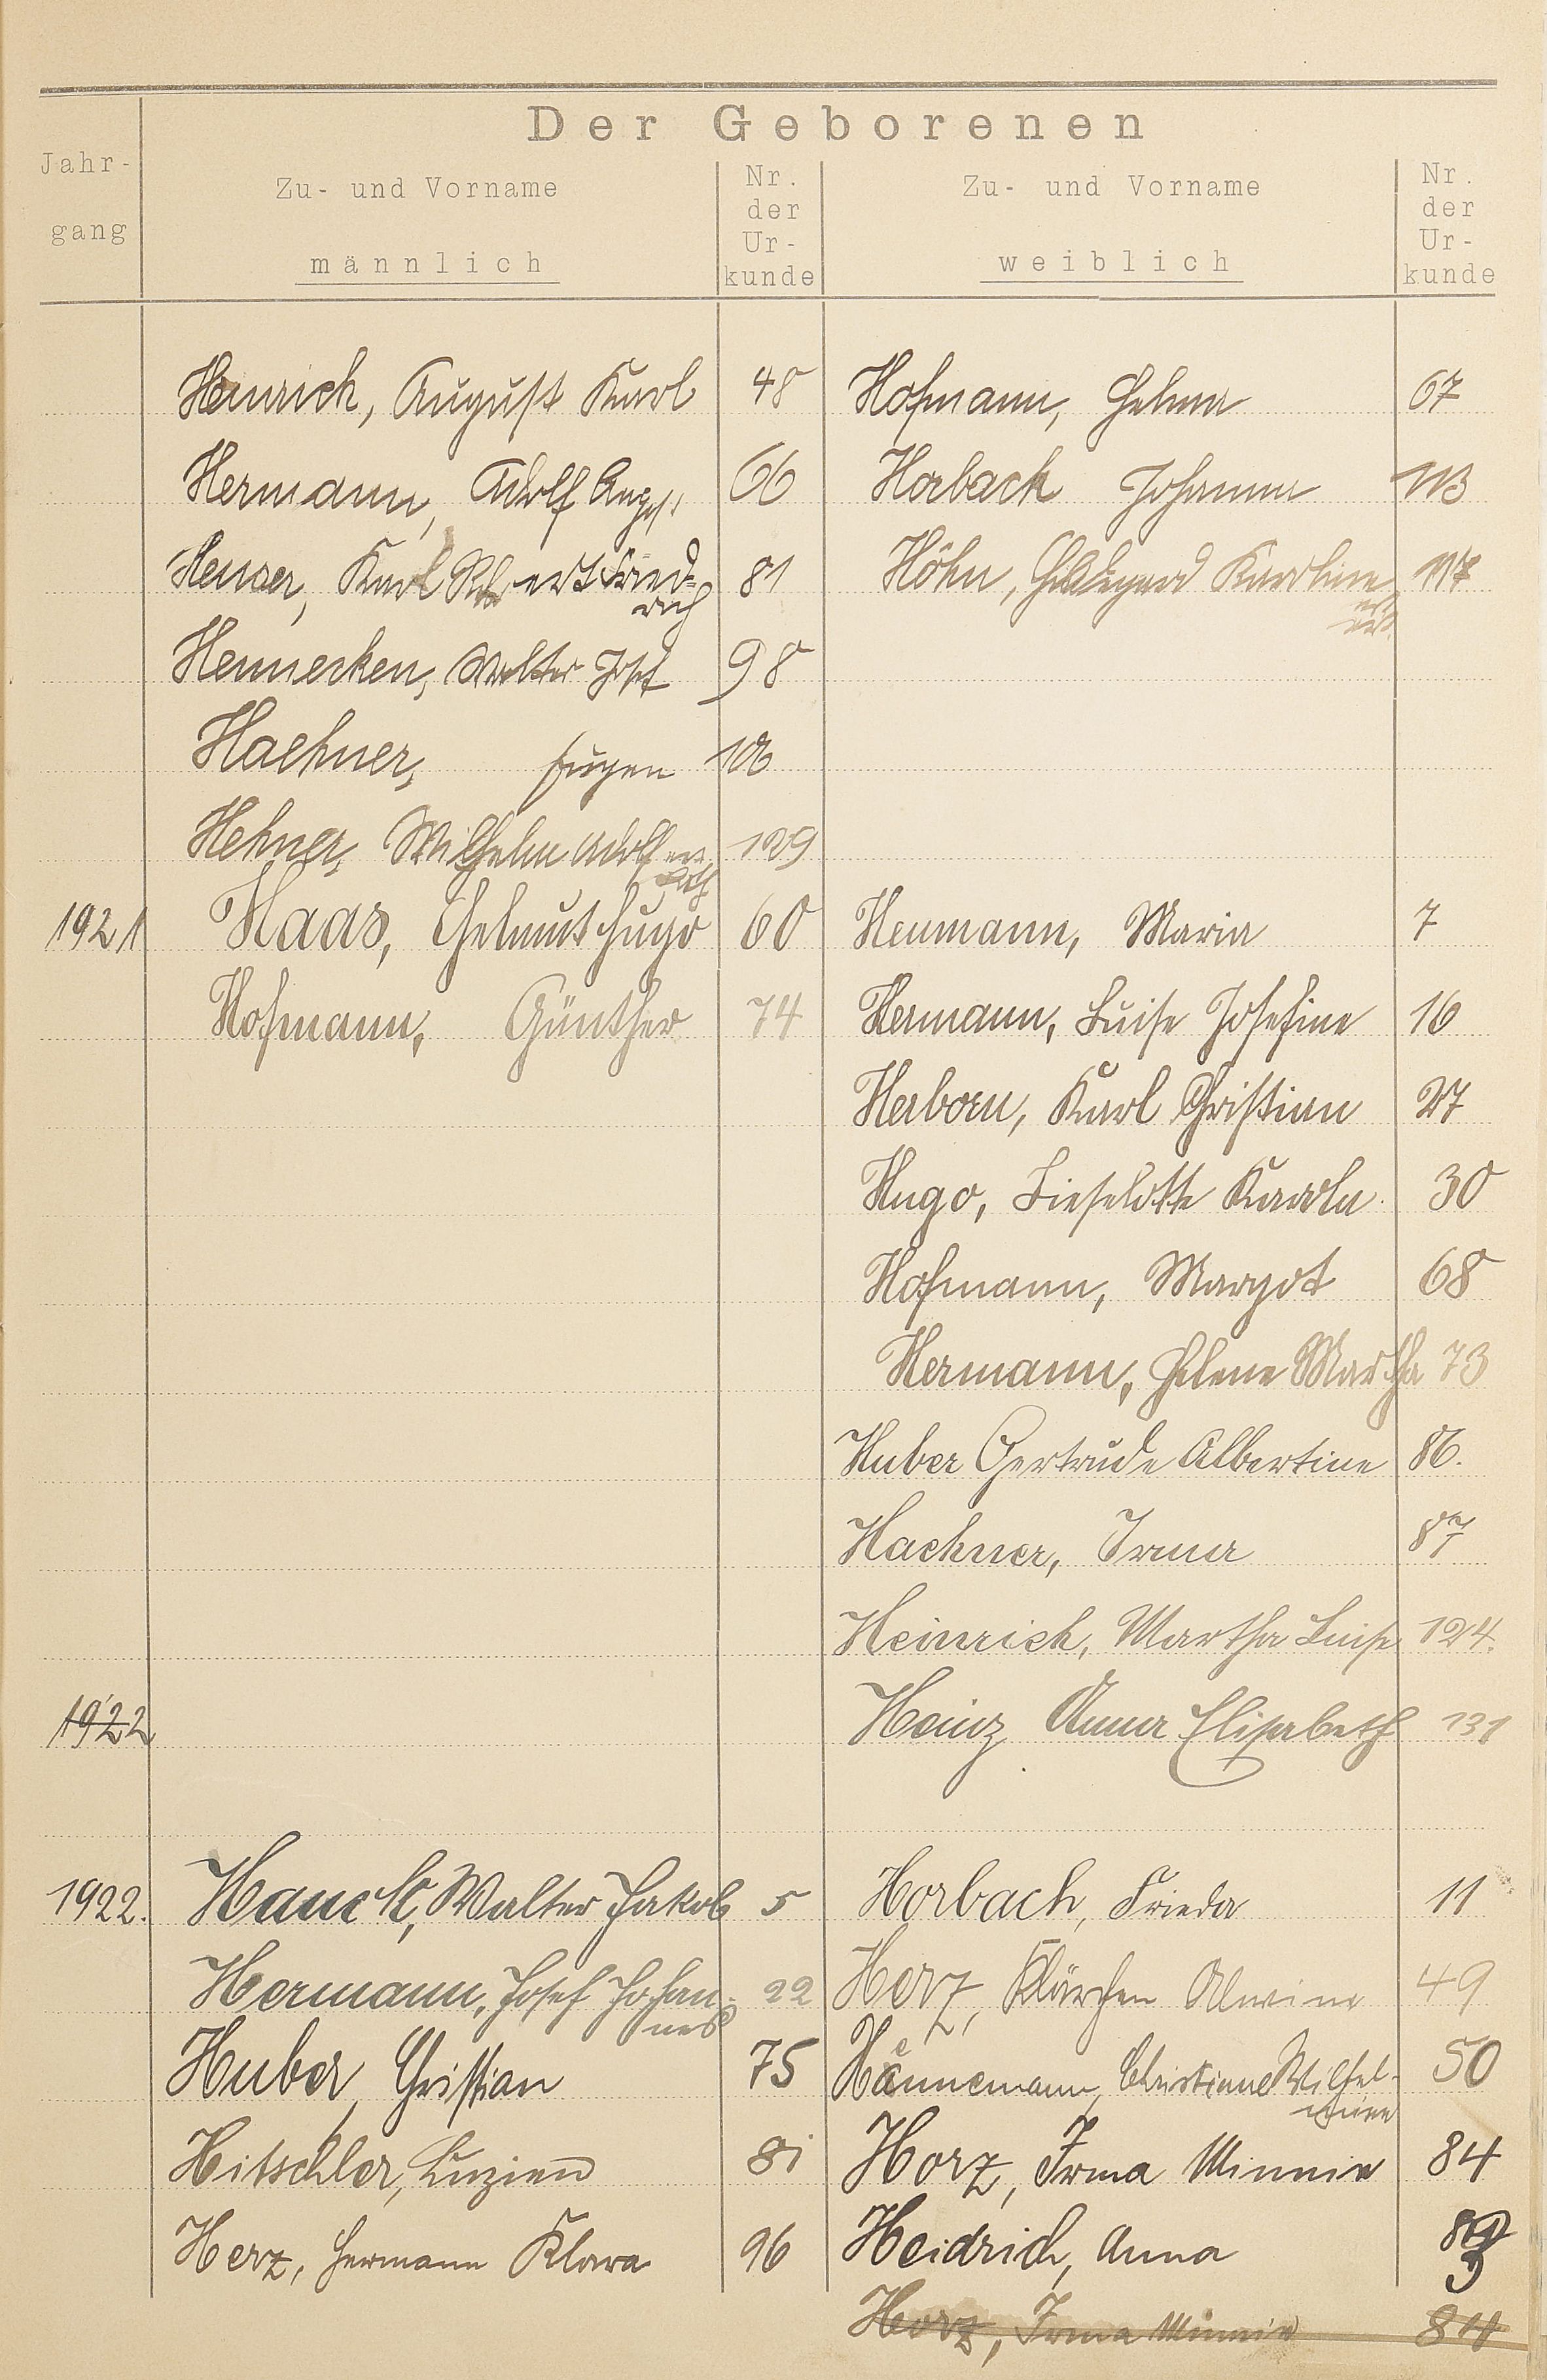 Der Geborenen
Jahr-
gang
Zu- und Vorname
männlich
Nr.
der
Ur-
kunde
Zu- und Vorname
weiblich
Nr.
der
Ur-
kunde
Heinrich, August Karl 48 Hofmann, Helma 67
Hermann, Adolf Aug. 66 Horbach Johanna 113
Heuser, Karl Robert Fried- 81 Höhn, Hildegard Karoline 117
rich
Hennecken, Walter Josef 98
Haehner, Eugen 106
Hehner, Wilhelm Adolf 129
1921 Haas, Helmut Hugo 60 Heumann, Maria 7
Hofmann, Günther 74 Hermann, Luise Josefine 16
Herborn, Karl Christian 27
Hugo, Lieselotte Karola 30
Hofmann, Margot 68
Hermann, Helene Martha 73
Huber Gertrude Albertine 86.
Haehner, Irma 87
Heinrich, Martha Luise 124.
1922 Heinz Anna Elisabeth 131
1922. Hauck, Walter Jakob 5 Horbach, Frieda 11
Hermann, Josef Johan- 22 Herz, Klärchen Alwine 49
nes
Huber, Christian 75 Hennemann, Christiane Wilhel- 50
mine
Hitschler, Luzian 81 Horz, Irma Minnie 84
Herz, Hermann Klara 96 Heidrich, Anna 89
Horz, Irma Minnie 84